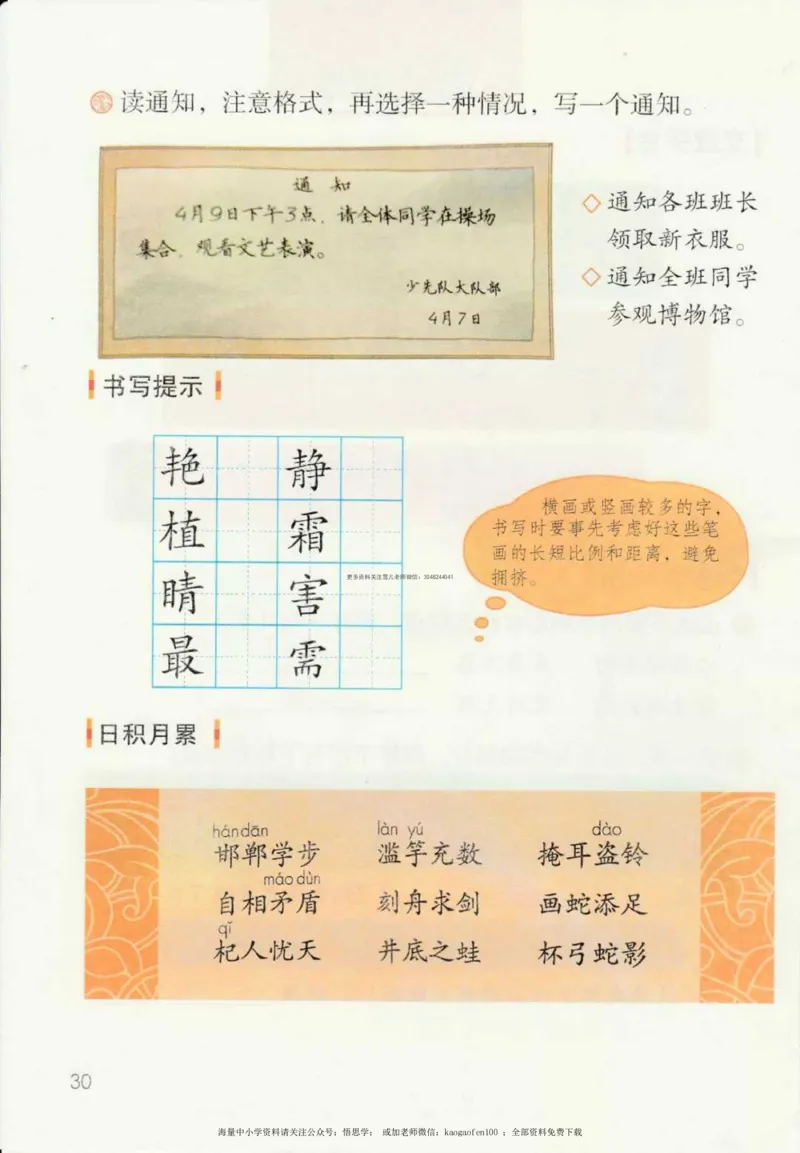 读通知，注意格式，再选择一种情况，写一个通知。
通 知
4月9日下午3点，请全体同学在操场
集合，观看文艺表演。
少先队大队部
4月7日
◇ 通知各班班长
领取新衣服。
◇ 通知全班同学
参观博物馆。
书写提示
艳 静
植 霜
睛 害
最 需
横画或竖画较多的字，
书写时要事先考虑好这些笔
画的长短比例和距离，避免
拥挤。
更多资料关注雪儿老师微信：3048244041
日积月累
hán dān làn yú dào
邯郸学步 滥竽充数 掩耳盗铃
máo dùn
自相矛盾 刻舟求剑 画蛇添足
qǐ
杞人忧天 井底之蛙 杯弓蛇影
30
海量中小学资料请关注公众号：悟思学； 或加老师微信：kaogaofen100 ；全部资料免费下载